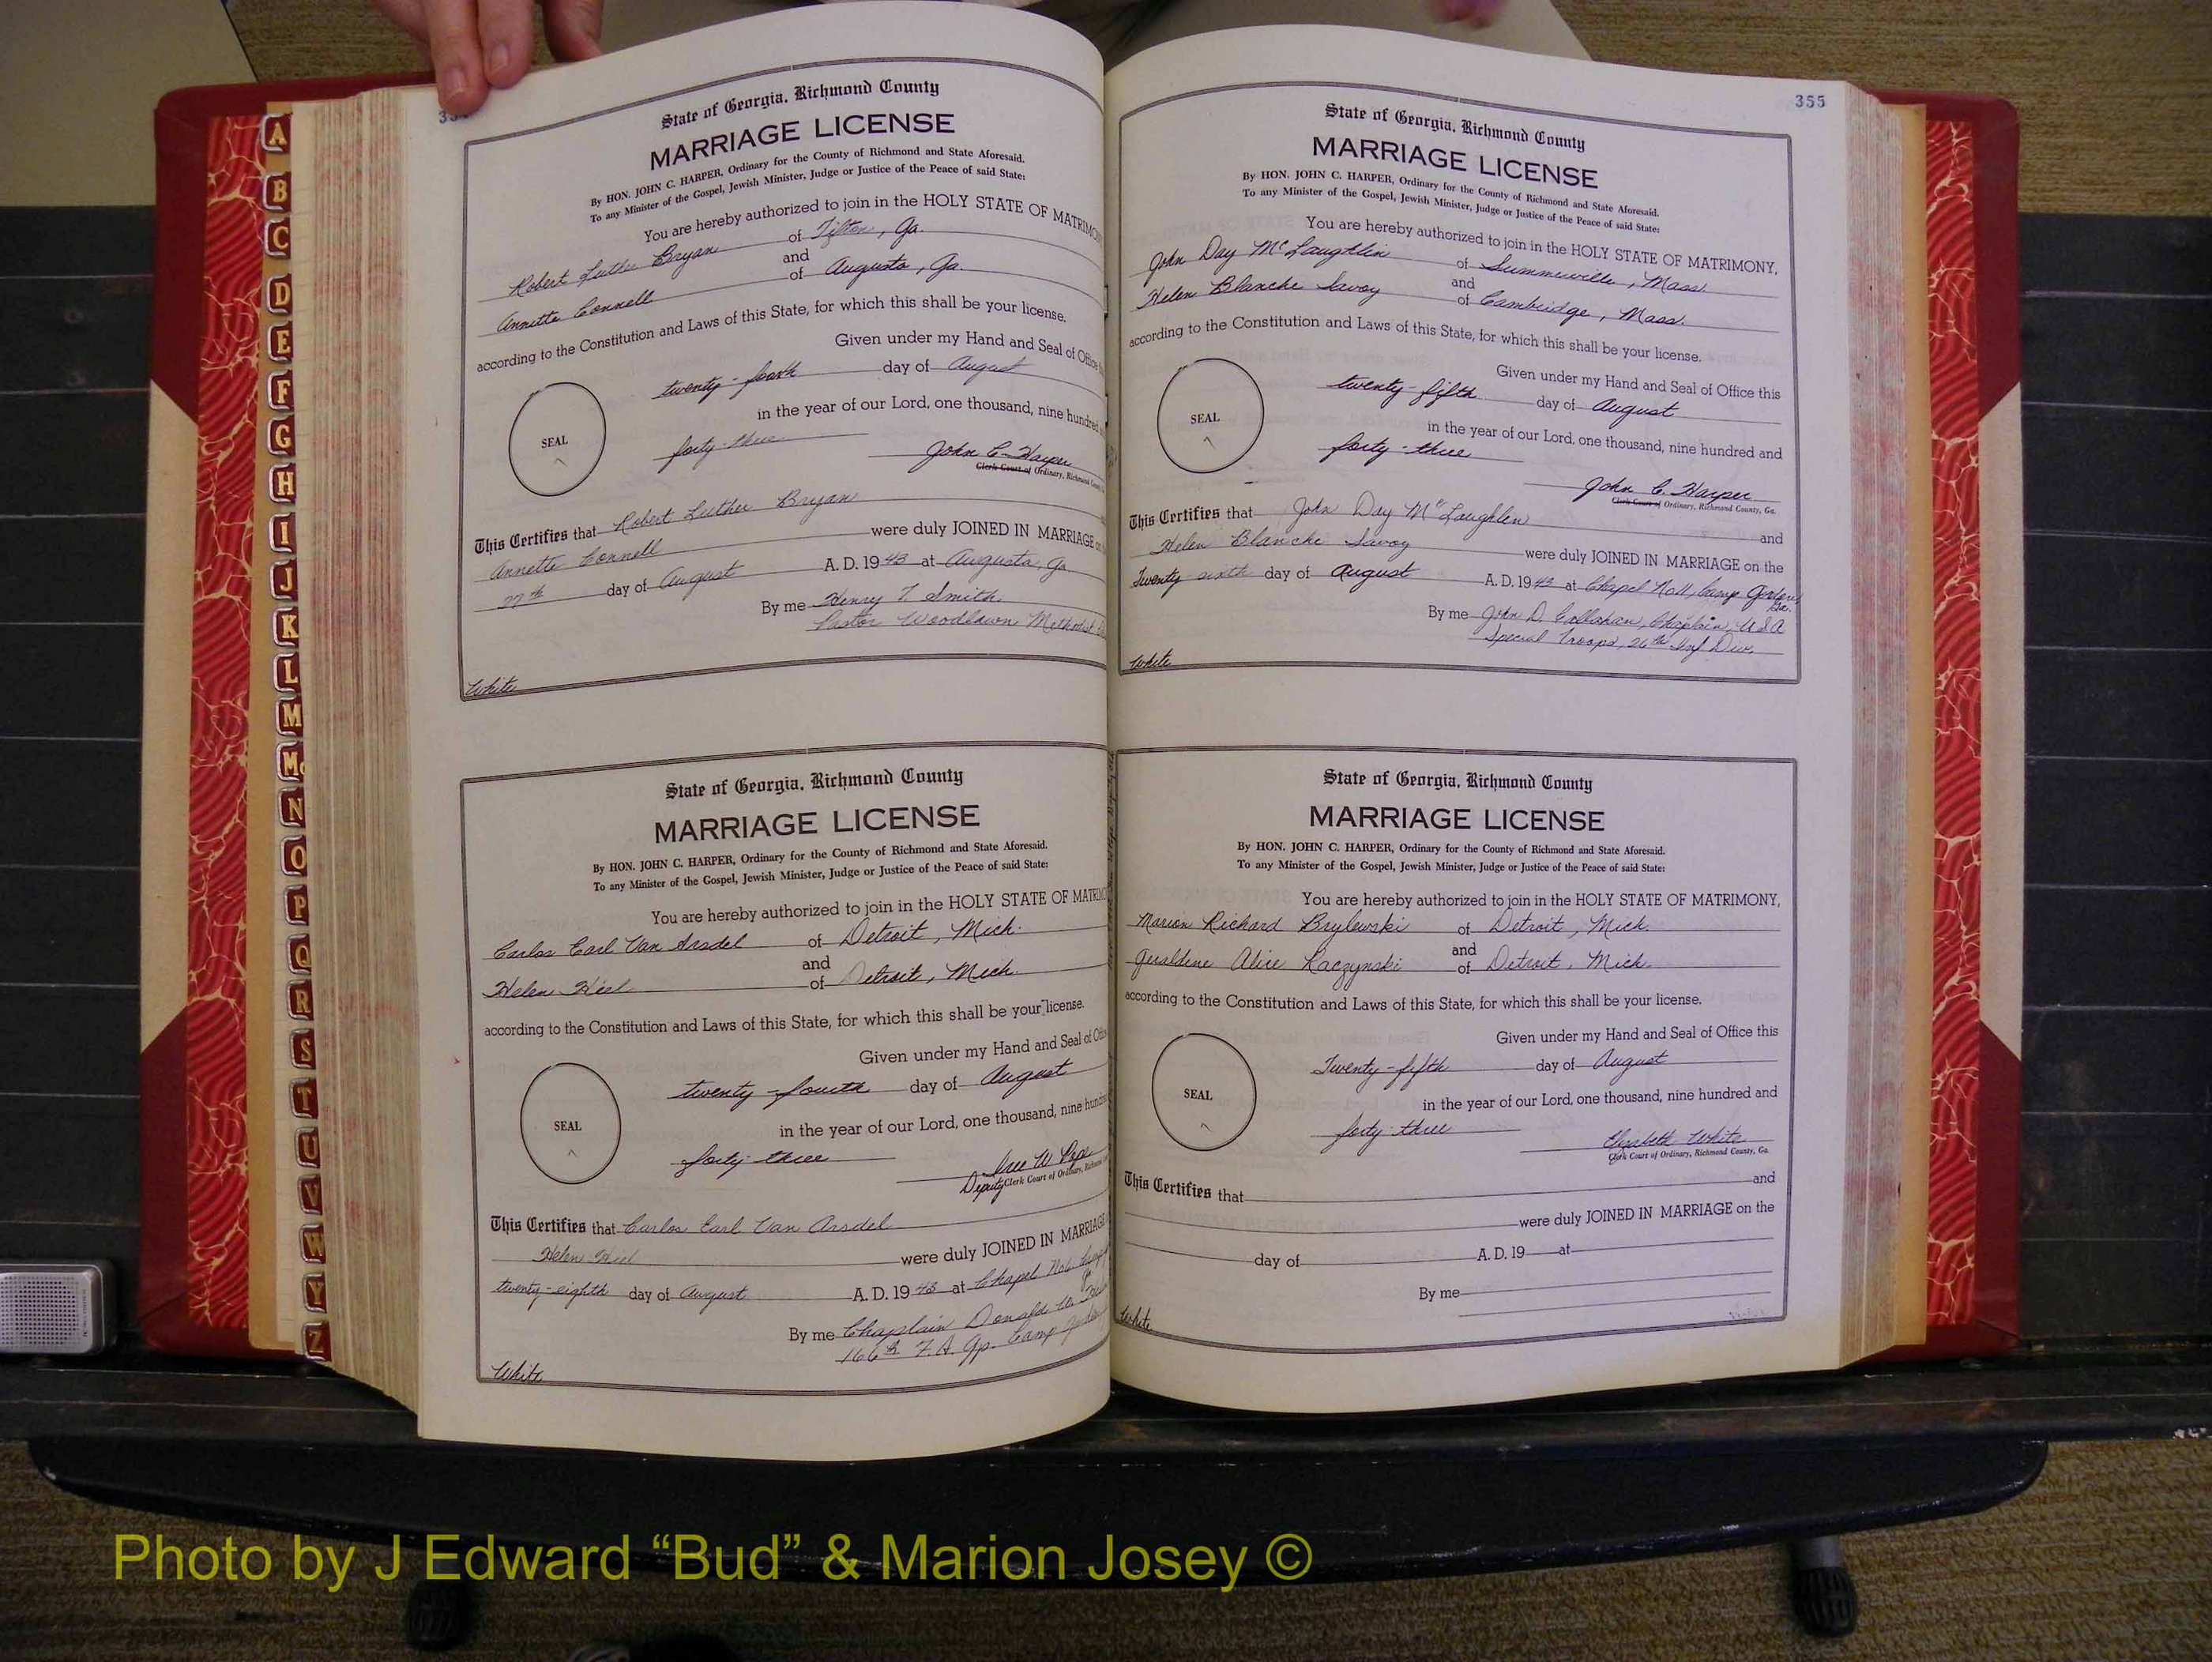 State of Georgia, Richmond County
MARRIAGE LICENSE
By HON. JOHN C. HARPER, Ordinary for the County of Richmond and State Aforesaid.
To any Minister of the Gospel, Jewish Minister, Judge or Justice of the Peace of said State:
You are hereby authorized to join in the HOLY STATE OF MATRIMONY
Robert Luther Bryan of Tifton, Ga.
and
Annette Connell of Augusta, Ga.
according to the Constitution and Laws of this State, for which this shall be your license.
Given under my Hand and Seal of Office
twenty-fourth day of August
in the year of our Lord, one thousand, nine hundred
SEAL
forty-three
John C. Harper
Clerk Court of Ordinary, Richmond
This Certifies that Robert Luther Bryan
Annette Connell were duly JOINED IN MARRIAGE
27th day of August A. D. 1943 at Augusta, Ga
By me Henry T. Smith
Pastor Woodlawn Methodist
White
State of Georgia, Richmond County
MARRIAGE LICENSE
By HON. JOHN C. HARPER, Ordinary for the County of Richmond and State Aforesaid.
To any Minister of the Gospel, Jewish Minister, Judge or Justice of the Peace of said State:
You are hereby authorized to join in the HOLY STATE OF
Carlos Earl Van Arsdel of Detroit, Mich.
and
Helen of Detroit, Mich.
according to the Constitution and Laws of this State, for which this shall be your license.
Given under my Hand and Seal of
twenty-fourth day of August
in the year of our Lord, one thousand, nine
SEAL
forty-three
Deputy Clerk Court of Ordinary,
This Certifies that Carlos Earl Van Arsdel
Helen were duly JOINED IN MARRIAGE
twenty-eighth day of August A. D. 1943 at Chapel
By me Chaplain Donald
166th F. A. Gp. Camp
White
355
State of Georgia, Richmond County
MARRIAGE LICENSE
By HON. JOHN C. HARPER, Ordinary for the County of Richmond and State Aforesaid.
To any Minister of the Gospel, Jewish Minister, Judge or Justice of the Peace of said State:
You are hereby authorized to join in the HOLY STATE OF MATRIMONY,
John Day McLaughlin of Summerville, Mass.
and
Helen Blanche Savoy of Cambridge, Mass.
according to the Constitution and Laws of this State, for which this shall be your license.
Given under my Hand and Seal of Office this
twenty-fifth day of August
in the year of our Lord, one thousand, nine hundred and
SEAL
forty-three
John C. Harper
Clerk Court of Ordinary, Richmond County, Ga.
This Certifies that John Day McLaughlen and
Helen Blanche Savoy were duly JOINED IN MARRIAGE on the
Twenty sixth day of August A. D. 1943 at Chapel No 11, Camp Gordon, Ga.
By me John D. Callahan, Chaplain, U S A
Special Troops, 26th Inf Div.
White
State of Georgia, Richmond County
MARRIAGE LICENSE
By HON. JOHN C. HARPER, Ordinary for the County of Richmond and State Aforesaid.
To any Minister of the Gospel, Jewish Minister, Judge or Justice of the Peace of said State:
You are hereby authorized to join in the HOLY STATE OF MATRIMONY,
Marion Richard Brylewski of Detroit, Mich.
and
Geraldine Alice Kaczynski of Detroit, Mich
according to the Constitution and Laws of this State, for which this shall be your license.
Given under my Hand and Seal of Office this
Twenty-fifth day of August
in the year of our Lord, one thousand, nine hundred and
SEAL
forty-three
Elizabeth White
Clerk Court of Ordinary, Richmond County, Ga.
This Certifies that and
were duly JOINED IN MARRIAGE on the
day of A. D. 19 at
By me
White
A
B
C
D
E
F
G
H
I
J
K
L
M
Mc
N
O
P
Q
R
S
T
U
V
W
Y
Z
Photo by J Edward “Bud” & Marion Josey ©